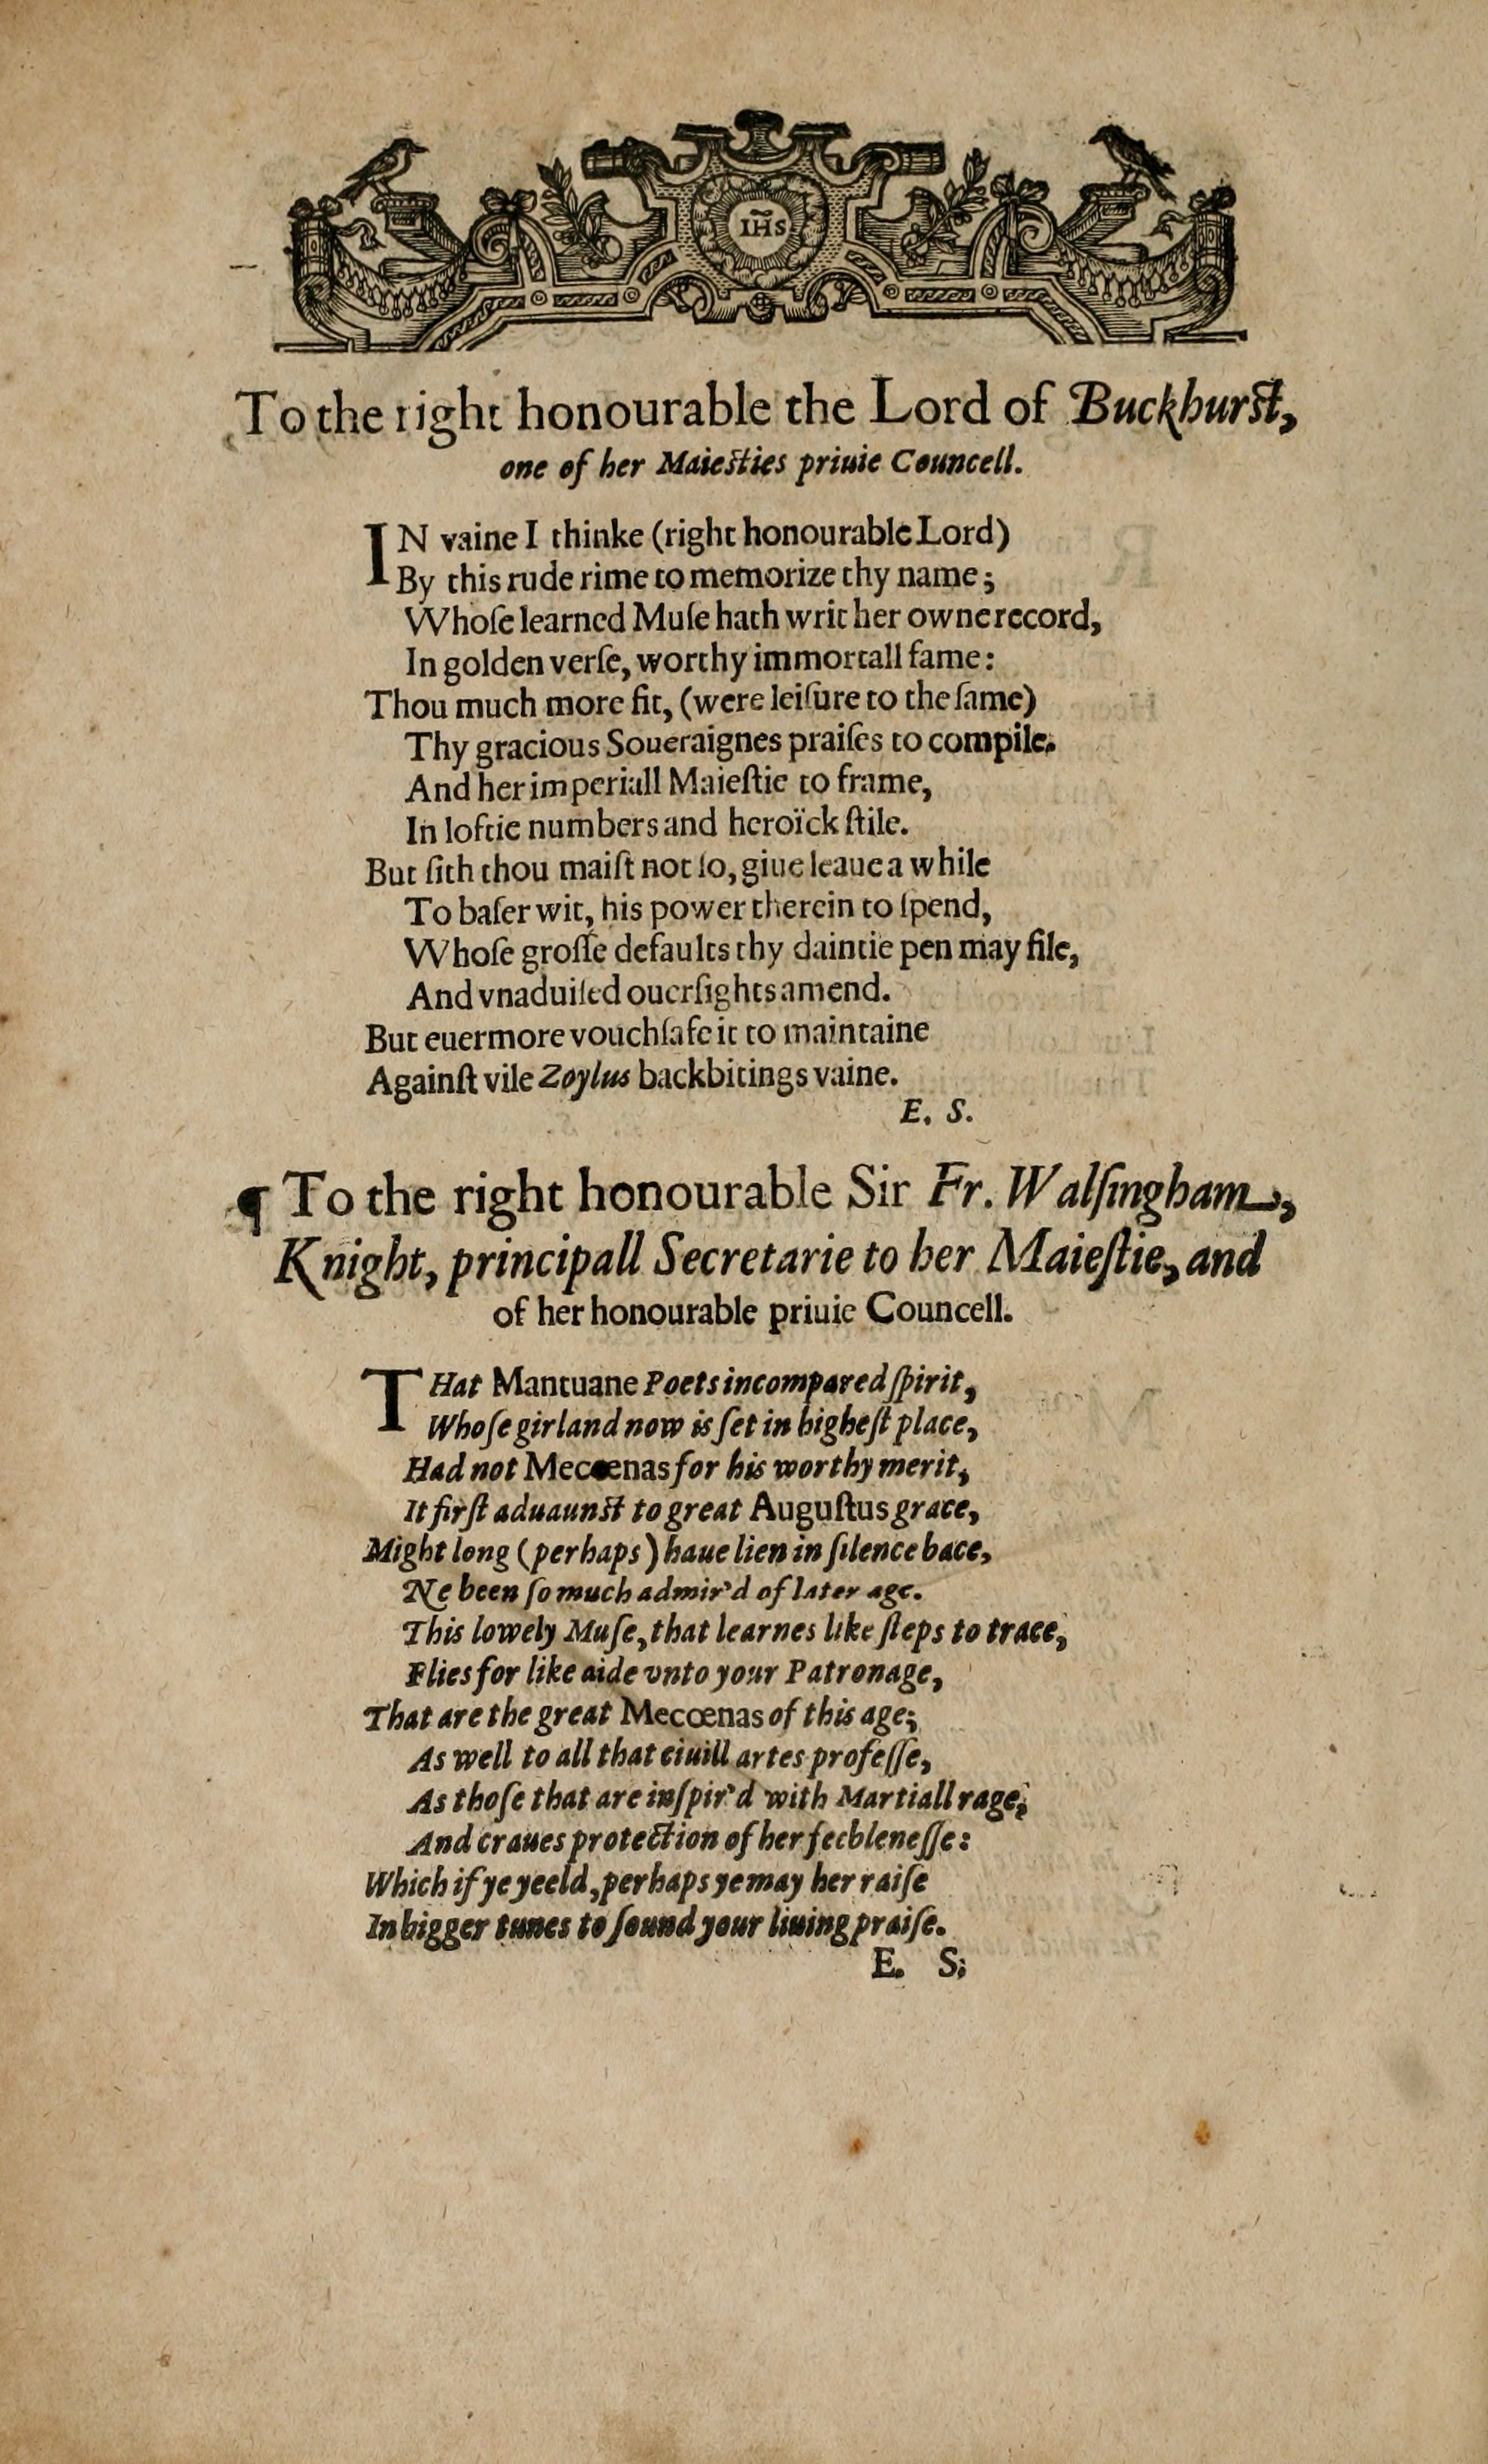 IH̃S
To the right honourable the Lord of Buckhurst,
one of her Maiesties priuie Councell.
IN vaine I thinke (right honourable Lord)
By this rude rime to memorize thy name;
Whoſe learned Muſe hath writ her owne record,
In golden verſe, worthy immortall fame:
Thou much more fit, (were leiſure to the ſame)
Thy gracious Soueraignes praiſes to compile.
And her imperiall Maieſtie to frame,
In loftie numbers and heroïck ſtile.
But ſith thou maiſt not ſo, giue leaue a while
To baſer wit, his power therein to ſpend,
Whoſe groſſe defaults thy daintie pen may file,
And vnaduiſed ouerſights amend.
But euermore vouchſafe it to maintaine
Againſt vile Zoylus backbitings vaine.
E. S.
¶ To the right honourable Sir Fr. Walſingham,
Knight, principall Secretarie to her Maieſtie, and
of her honourable priuie Councell.
THat Mantuane Poets incompared ſpirit,
Whoſe girland now is ſet in higheſt place,
Had not Mecœnas for his worthy merit,
It firſt aduaunst to great Auguſtus grace,
Might long (perhaps) haue lien in ſilence bace,
Ne been ſo much admir'd of later age.
This lowely Muſe, that learnes like ſteps to trace,
Flies for like aide vnto your Patronage,
That are the great Mecœnas of this age;
As well to all that ciuill artes profeſſe,
As thoſe that are inſpir'd with Martiall rage;
And craues protection of her feebleneſſe:
Which if ye yeeld, perhaps ye may her raiſe
In bigger tunes to ſound your liuing praiſe.
E. S;